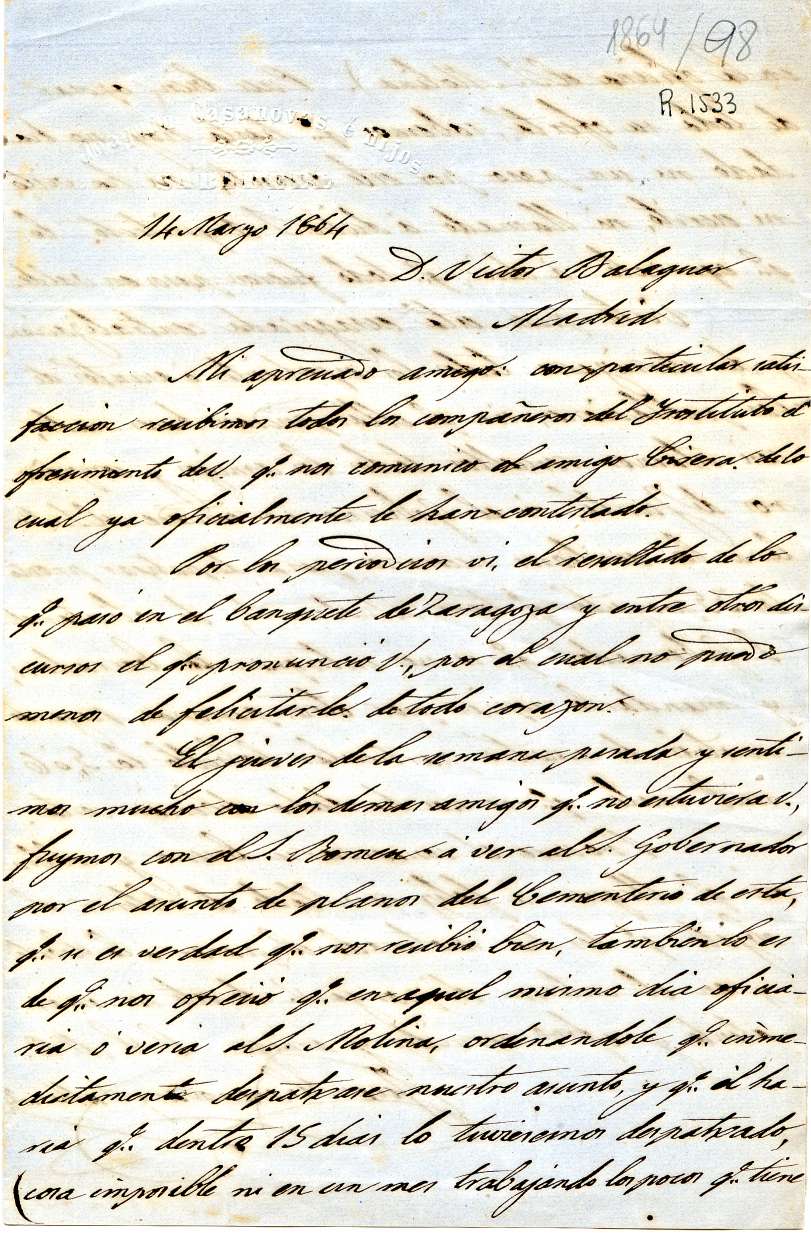 1864/98
R.1533
Casanovas é hijos
14 Marzo 1864
D. Victor Balaguer
Madrid
Mi apreciado amigo: con particular satis-
faccion recibimos todos los compañeros del Instituto el
ofrecimiento de V. qe. nos comunicó el amigo Cisera. de lo
cual ya oficialmente le han contestado.
Por los periodicos vi, el resultado de lo
qe. pasó en el banquete de Zaragoza y entre otros dis-
cursos el qe. pronunció V., por el cual no puedo
menos de felicitarle de todo corazon.
El jueves de la semana pasada y senti-
mos mucho con los demas amigos qe. no estuviera V.,
fuymos con el S. Romeu á ver al S. Gobernador
por el asunto de planos del Cementerio de esta,
qe. si es verdad qe. nos recibió bien, tambien lo es
de qe. nos ofreció qe. en aquel mismo dia oficia-
ria ó veria al S. Molina, ordenandole qe. inme-
diatamente despatxase nuestro asunto, y qe. él ha-
ria qe. dentro 15 dias lo tuviesemos despatxado,
(cosa imposible ni en un mes trabajando los pocos qe. tiene